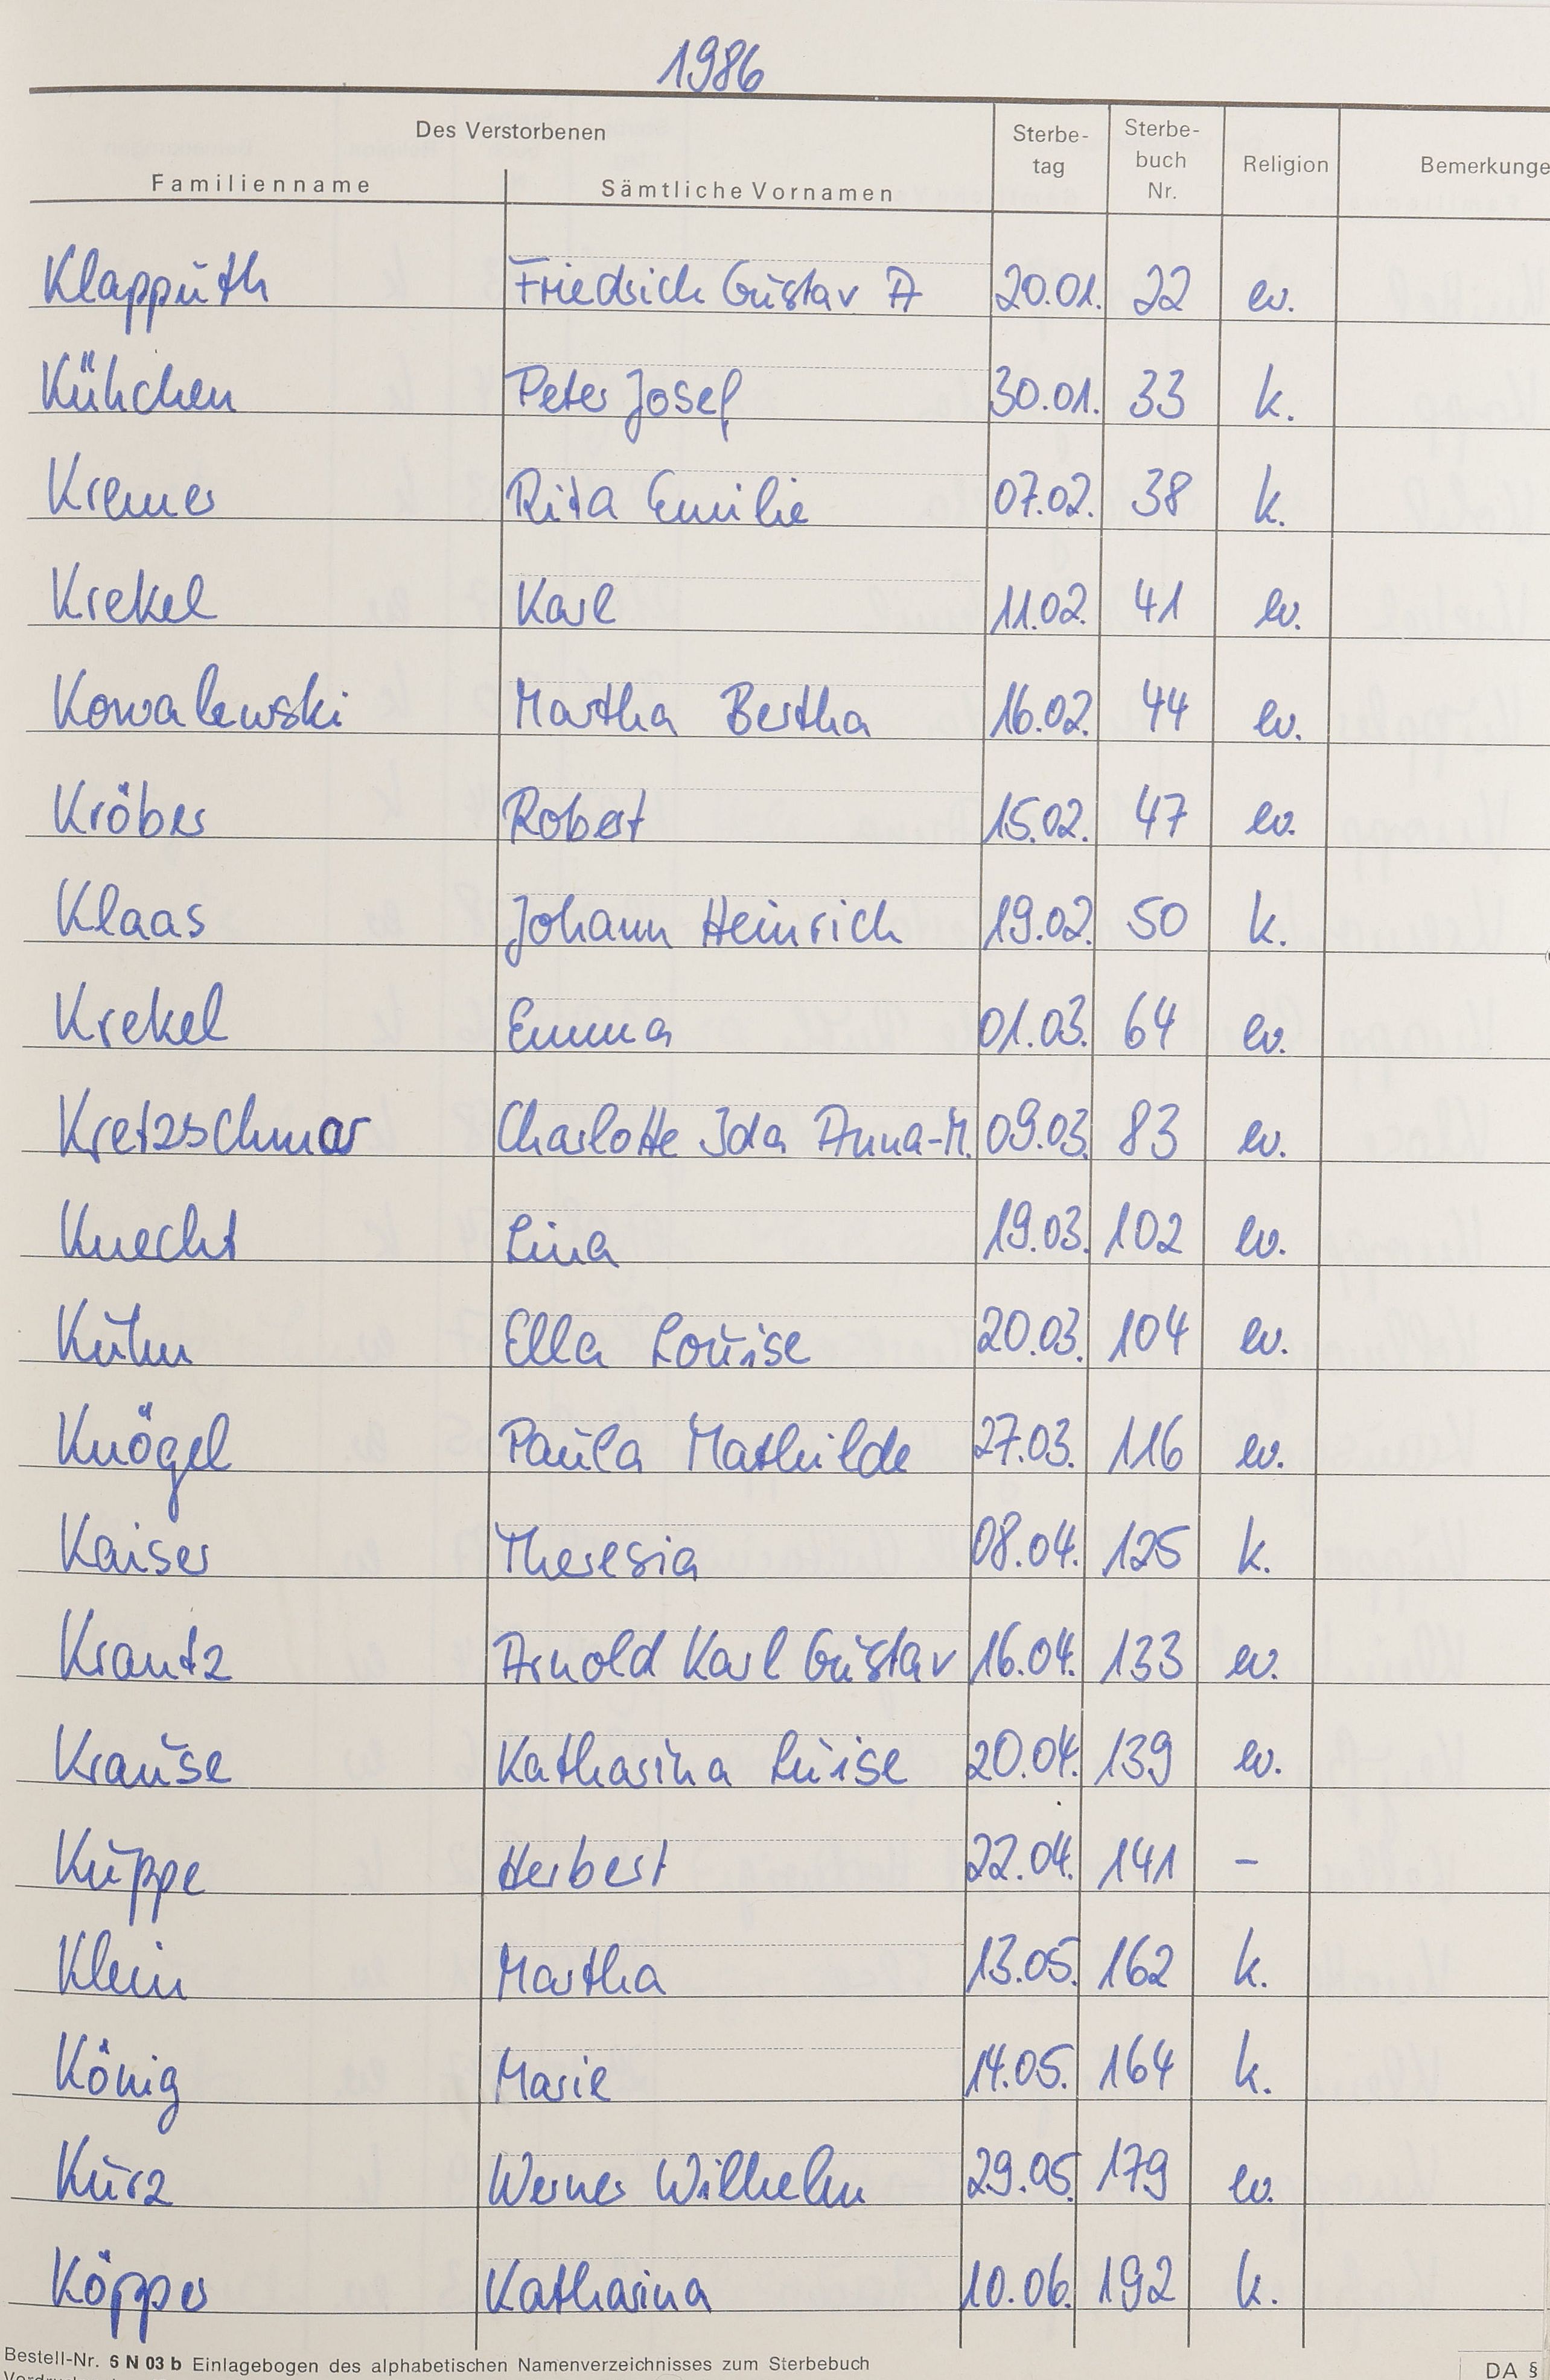 1986
Des Verstorbenen
Sterbe-
tag
Sterbe-
buch
Nr.
Religion
Bemerkunge
Familienname
Sämtliche Vornamen
Klapputh Friedrich Gustav A 20.01. 22 ev.
Kühchen Peter Josef 30.01. 33 k.
Kremer Rita Emilie 07.02. 38 k.
Krekel Karl 11.02. 41 ev.
Kowalewski Martha Bertha 16.02. 44 ev.
Kröber Robert 15.02. 47 ev.
Klaas Johann Heinrich 19.02. 50 k.
Krekel Emma 01.03. 64 ev.
Kretzschmar Charlotte Ida Anna-M. 09.03. 83 ev.
Knecht Lina 19.03. 102 ev.
Kuhn Ella Louise 20.03. 104 ev.
Knögel Paula Mathilde 27.03. 116 ev.
Kaiser Theresia 08.04. 125 k.
Krantz Arnold Karl Gustav 16.04. 133 ev.
Krause Katharina Luise 20.04. 139 ev.
Kuppe Herbert 22.04. 141 –
Klein Martha 13.05. 162 k.
König Marie 14.05. 164 k.
Kurz Werner Wilhelm 29.05. 179 ev.
Köpper Katharina 10.06. 192 k.
Bestell-Nr. 5 N 03 b Einlagebogen des alphabetischen Namenverzeichnisses zum Sterbebuch
DA §